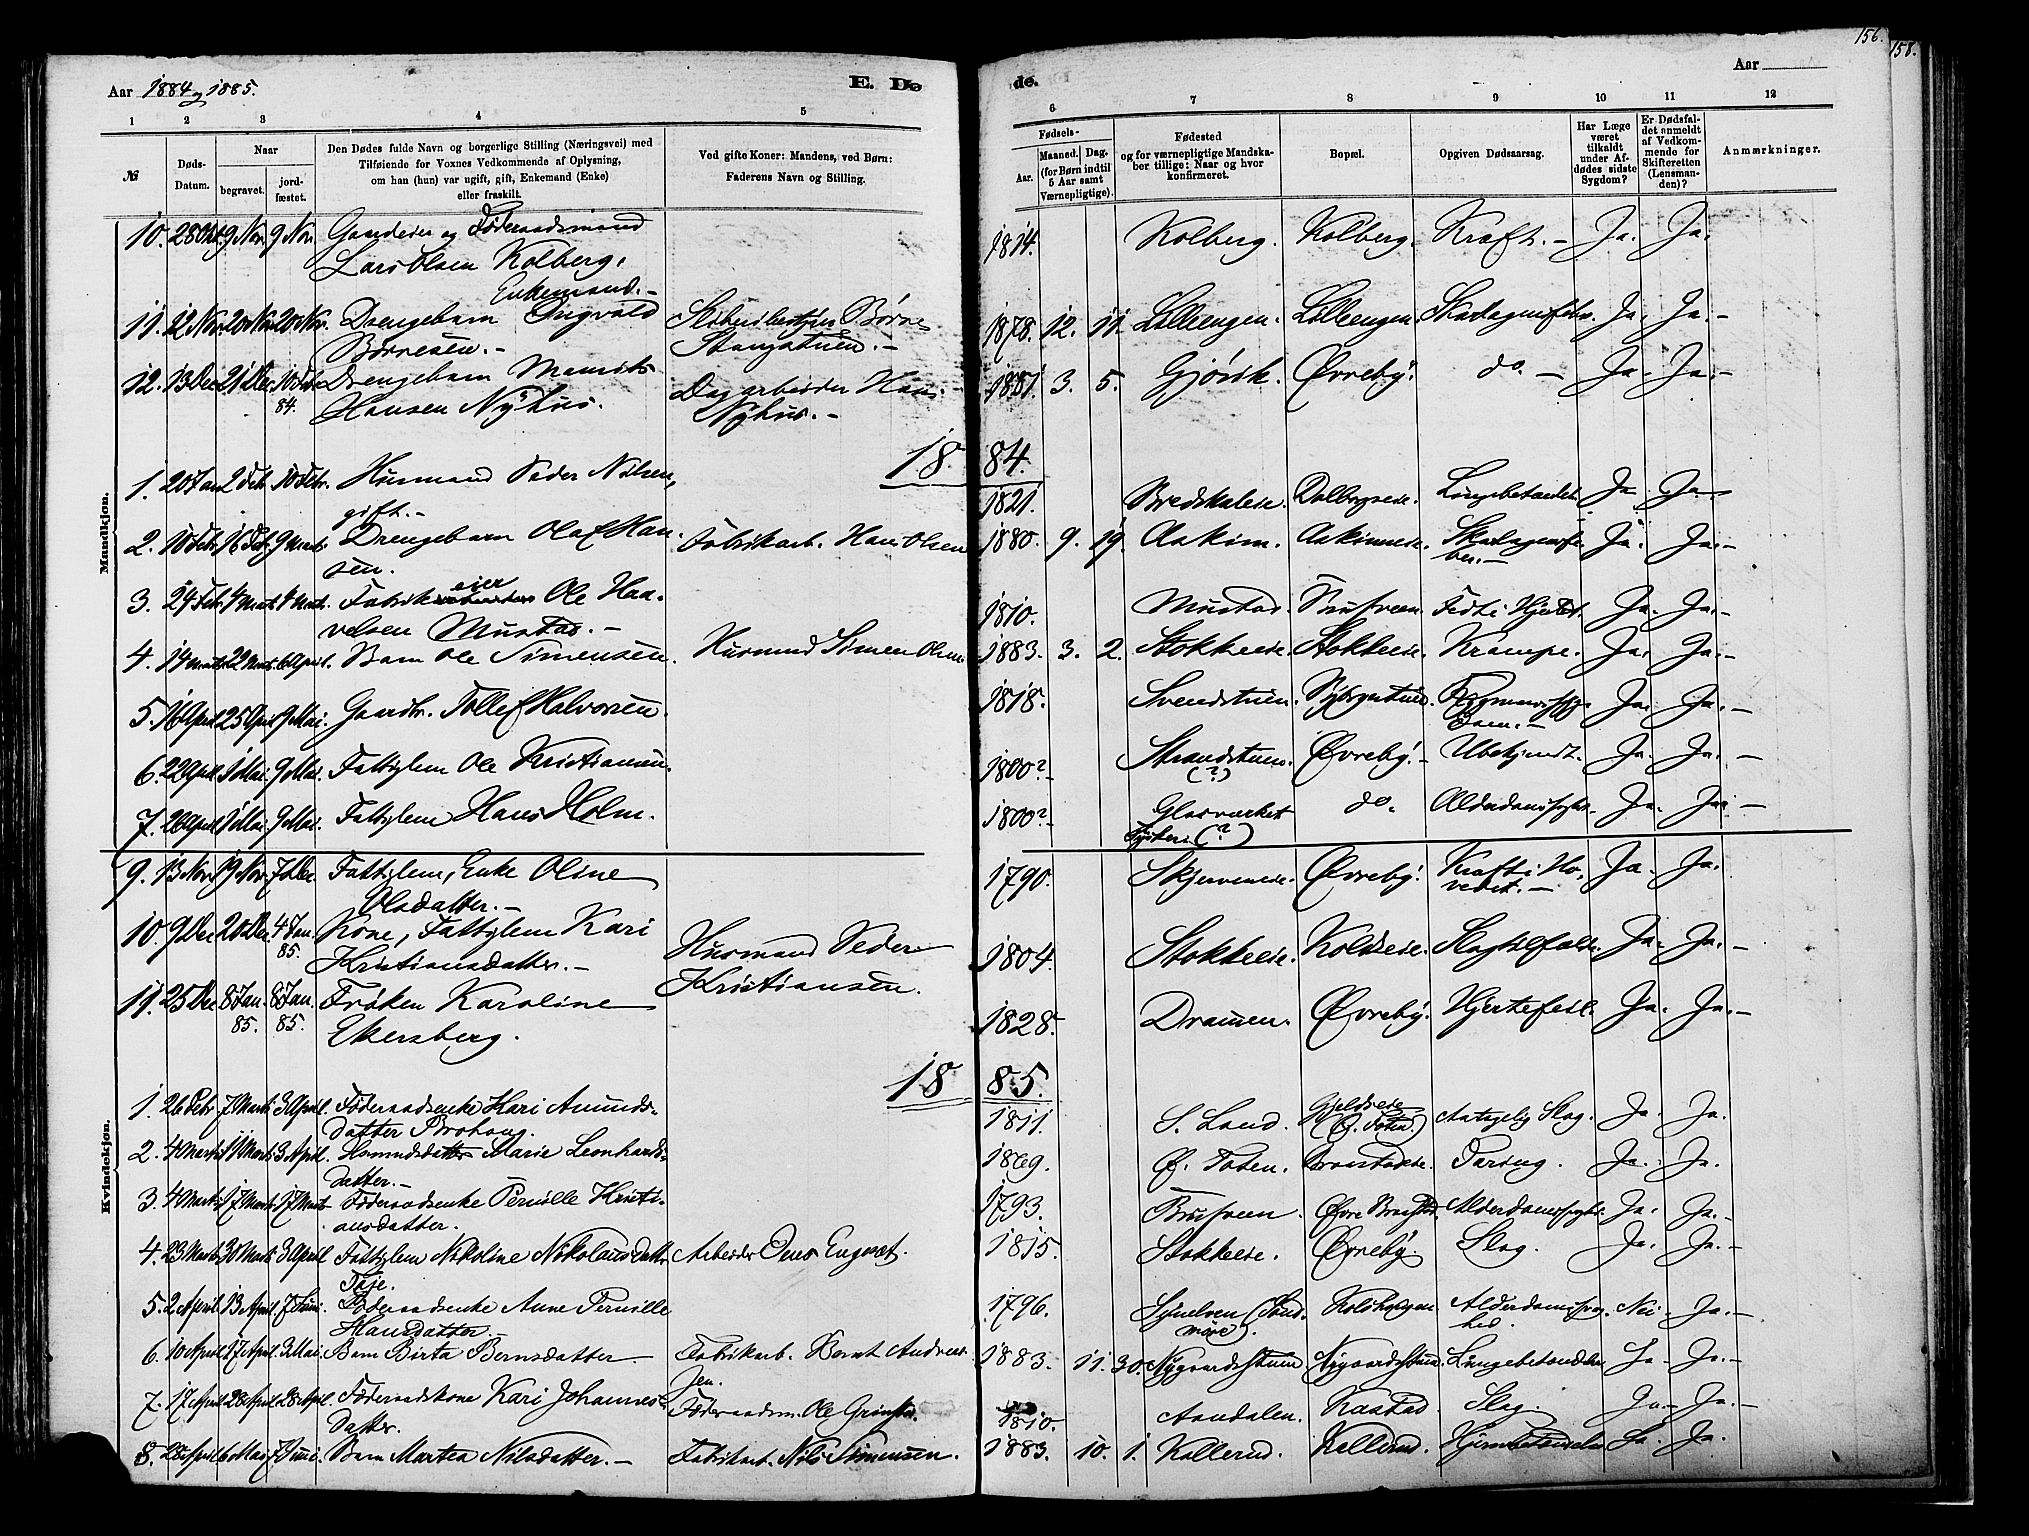 156.
158.
Aar 1884 og 1885.
E. Dø
de.
Aar
1 2 3 4 5
6 7 8 9 10 11 12
№
Døds-
Datum.
Naar
begravet.
jord-
fæstet.
Den Dødes fulde Navn og borgerlige Stilling (Næringsvei) med
Tilføiende for Voxnes Vedkommende af Oplysning,
om han (hun) var ugift, gift, Enkemand (Enke)
eller fraskilt.
Ved gifte Koner: Mandens, ved Børn:
Faderens Navn og Stilling.
Fødsels-
Aar.
Maaned. Dag.
(for Børn indtil
5 Aar samt
Værnepligtige).
Fødested
og for værnepligtige Mandska-
ber tillige: Naar og hvor
konfirmeret.
Bopæl.
Opgiven Dødsaarsag.
Har Læge
været
tilkaldt
under Af-
dødes sidste
Sygdom?
Er Dødsfal-
det anmeldt
af Vedkom-
mende for
Skifteretten
(Lensman-
den)?
Anmærkninger.
Mandkjøn.
10. 28 Okt 9 Nov. 9 Nov. Gaardeier og Føderaadsmand 1814. Kolberg. Kolberg. Kræft. Ja. Ja.
Lars Olsen Kolberg,
Enkemand.
11. 12 Nov 20 Nov 20 Nov. Drengebarn Ingvald 1878. 12. 11. Lilleengen. Lilleengen. Ja. Ja.
Børresen. Stangstuen.
12. 13 Dec 21 Dec 10 Feb Drengebarn Dagarbeider Hans 1881. 3. 5. Gjøvik. Øvreby. do. Ja. Ja.
84. Hansen Nyhus. Nyhus.
1884.
1. 20 Jan 2 Feb. 10 Febr. Husmand Peder Nilsen, 1821. Lungebetændels. Ja. Ja.
gift.
2. 10 Febr. 16 Feb. 9 Marts Drengebarn Olaf Han- Fabrikarb. Hans Olsen 1880. 9. 19. Ja. Ja.
sen. ber.
3. 24 Febr. 4 Marts 4 Marts. Fabrikeier Ole Haa- 1810. Mustad. Bruflveen. Fedt i Hjertet. Ja. Ja.
velsen Mustad.
4. 14 Marts 22 Marts. 6 April. Barn Ole Simensen. Husmand Simen Olsen 1883. 3. 2. Stokkeeie. Stokkeeie. Krampe. Ja. Ja.
5. 16 April 25 April 9 Mai. Gaardbr. Tollef Halvorsen. 1818. Svendstuen. Ja. Ja.
6. 22 April 1 Mai. 9 Mai. Fattiglem Ole Kristiansen. 1800? Strandstuen. Øvreby. Ubekjendt. Ja. Ja.
(?)
7. 26 April 1 Mai. 9 Mai. Fattiglem Hans Holm. 1800? Glasværket do. Alderdomssvaghed. Ja. Ja.
(?)
Kvindekjøn.
9. 13 Nov 19 Nov. 7 Dec. Fattiglem, Enke Oline 1790. Skjerveneie. Øvreby. Kræft i Ho- Ja. Ja.
Olsdatter. vedet.
10. 9 Dec 20 Dec. 4 Jan. Kone, Fattiglem Kari Husmand Peder 1804. Stokkeeie. Slagtilfælde. Ja. Ja.
85. Kristiansdatter. Kristiansen.
11. 25 Dec 8 Jan. 8 Jan. Frøken Karoline 1828. Dramen. Øvreby. Hjertefeil. Ja. Ja.
85. 85. Ekersberg.
1885.
1. 26 Febr 7 Marts 3 April. Føderaadsenke Kari Amunds- 1811. S. Land. Gjeldseie Antagelig Slag. Ja. Ja.
datter Brohaug. (Ø. Toten.)
2. 4 Marts 11 Marts 3 April. Husmandsdatter Marie Leonhards- 1869. Ø. Toten. Tæring. Ja. Ja.
datter.
3. 4 Marts 17 Marts 17 Marts Føderaadsenke Pernille Kristi- 1793. Bruflveen. Øvre Alderdomssvaghed. Ja. Ja.
ansdatter.
4. 23 Marts 30 Marts 3 April Fattiglem Nikoline Nikolaisdatter Arbeider Engnæt. 1815. Stokkeeie. Øvreby. Slag. Ja. Ja.
Teje.
5. 2 April 13 April. 7 Juni. Føderaadsenke Anne Pernille 1796. Synelven (Sønd- Alderdomssvag- Nei Ja.
Hansdatter. møre). hed.
6. 10 April 17 April. 3 Mai. Barn Birta Berntsdatter. Fabrikarb. Bernt Andrea- 1883. 11. 30. Nygaardsstuen Nygaardsstuen Lungebetændelse Ja. Ja.
sen.
7. 17 April 28 April 28 April. Føderaadskone Kari Johannes- Føderaadsm. Ole 1810. Aandalen. Kaastad. Slag. Ja. Ja.
datter.
8. 28 April 6 Mai 7 Juni. Barn Martea Nilsdatter. Fabrikarb. Nils Simensen. 1883. 10. 1. Kallerud. Kallerud. Hjernebetændelse Ja. Ja.